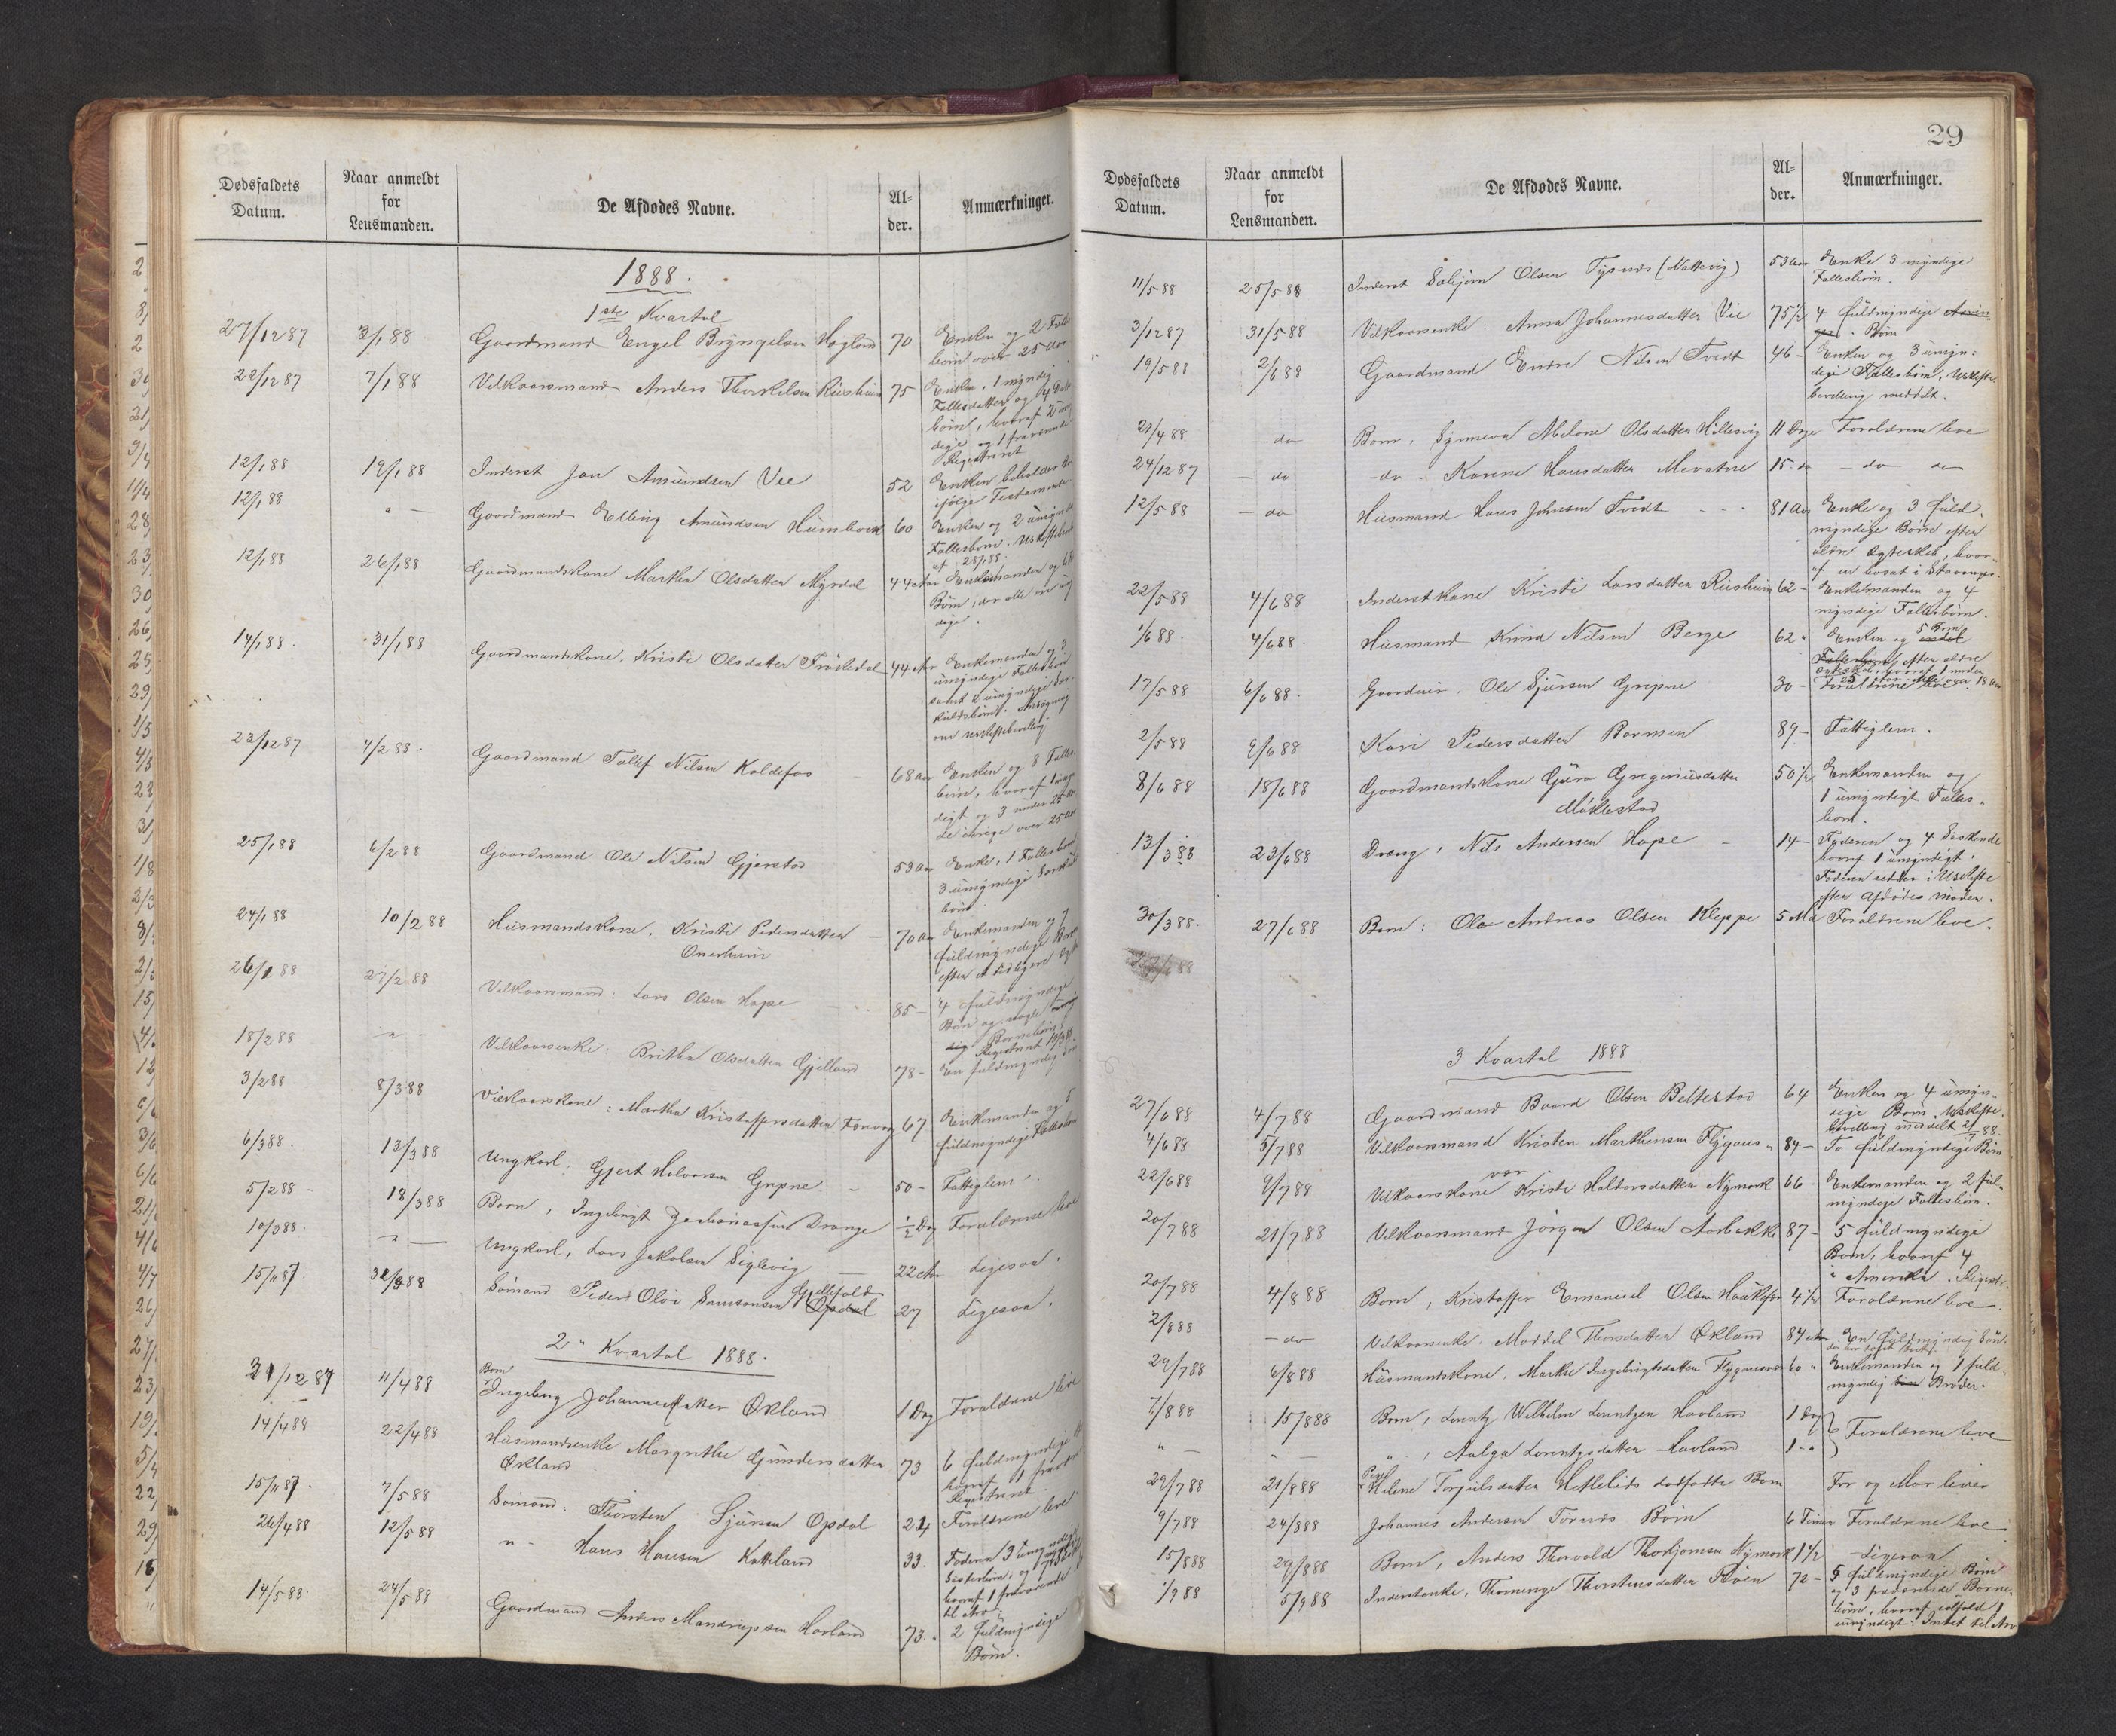 Dødsfaldets Datum.
Naar anmeldt for Lensmanden.
De Afdødes Navne.
Al-der.
Anmærkninger.
1888.
1ste Kvartal
27/12 87 3/1 88 Gaardmand Engel Brÿngelsen Hogland 70 Enken og 2 Fælles
børn over 25 Aar
22/12 87 7/1 88 Vilkaarsmand Anders Thorkelsen 75 Enken, 1 myndig
Fællesdatter og 4
børn, hvoraf 2
dige og 1 fraværende
Registreret
12/1 88 19/1 88 Inderst Jon Amundsen Vee 52 Enken beholder
ifølge Testamente
12/1 88 " — Gaardmand Elling Amundsen 60 Enken og 2
Fællesbørn.
af 28/1 88.
12/1 88 26/1 88 Gaardmandskone Martha Olsdatter Mÿrdal 44 Aar Enkemanden og
Børn, der alle ere
dige.
14/1 88. 31/1 88 Gaardmandskone, Kristi Olsdatter 44 Aar Enkemanden og 3
umÿndige Fællesbørn
samt 2 umÿndige
Ansøgning
om Uskiftebevilling
23/12 87 4/2 88. Gaardmand Tollef Nilsen Koldefos 68 Aar Enken og 8 Fælles
børn, hvoraf 1
digt og 3 under 25 Aar
de øvrige over 25 Aar
25/1 88 6/2 88 Gaardmand Ole Nilsen Gjerstad 53 Aar Enke, 1 Fællesbarn
3 umÿndige
børn
24/1 88 10/2 88 Husmandskone. Kristi Pedersdatter — 70 Aar Enkemanden og 7
Onerheim fuldmÿndige
efter et tidligere
26/1 88 27/2 88 Vilkaarsmand: Lars Olsen Hope 85 — 4 fuldmÿndige
Børn og nogle
Børnebørn
Registreret
18/2 88 " - Vilkaarsenke: Britha Olsdatter Gjelland 78 - En fuldmÿndig
3/2 88 8/3 88 Vilkaarskone: Martha Kristoffersdatter 67 Enkemanden og 5
fuldmÿndige Fællesbørn
6/3 88. 13/3 88 Ungkarl: Gjert Halvorsen Gripne - 50 - Fattiglem.
5/2 88 - 18/3 88 Barn, Ingebrigt Drange ½ Dag Forældrene leve
10/3 88. " — Ungkarl, Lars Jakobsen Siglevig — 22 Aar Ligesaa.
15/11 87. 31/3 88 Sømand Peder Olai Samsonsen Opdal 27 Ligesaa.
Gjellefald
2" Kvartal 1888.
31/12 87 11/4 88 Barn
Ingeborg Johannesdatter Økland 1 Dag Forældrene leve
14/4 88 22/4 88 Husmandsenke Margrethe Gundersdatter 73 6 fuldmÿndige
Økland hvoraf 1
Registreret
15/11 87. 7/5 88 Sømand: Thorsten Sjursen Opdal 24 Forældrene leve
26/4 88 12/5 88 " - Hans Hansen Kotteland 33. Faderen
Søsterbørn, og
hvoraf 1 fraværende
til Arv
14/5 88. 24/5 88 Gaardmand Anders Mandrupsen Havland 73. " 2 fuldmÿndige
Børn.
29
Dødsfaldets Datum.
Naar anmeldt for Lensmanden.
De Afdødes Navne.
Al-der.
Anmærkninger.
11/5 88 25/5 88 Inderst Sæbjørn Olsen Tÿsnes (Nattevig) 53 Aar Enke 3 mÿndige
Fællesbørn.
3/12 87 31/5 88 Vilkaarsenke: Anna Johannesdatter Vee 75½ 4 fuldmÿndige
Børn
19/5 88 2/6 88 Gaardmand Endre Nilsen Tvedt 46 - Enken og 3 umÿn-
dige Fællesbørn, Uskifte
bevilling meddelt.
21/4 88 — do Barn, Sÿnneva Malone Olsdatter Hillesvig 11 Dage Forældrene leve
24/12 87 — do - do - Karene Hansdatter Mevatne 15 do — do do
12/5 88 — do Husmand Lars Johnsen Tvedt - - - 81 Aar Enke og 3 fuld
mÿndige Børn efter
ældre Ægteskab, hvor-
af en bosat i Stavanger.
22/5 88 4/6 88 Inderstkone Kristi Larsdatter 62 - Enkemanden og 4
mÿndige Fællesbørn.
1/6 88. 4/6 88. Husmand Knud Nilsen Berge 62 " Enken og 5 Børn
efter ældre
Ægteskab, hvoraf 1 under
17/5 88 6/6 88. Gaardmand, Ole Sjursen Gripne 30 - Forældrene leve
2/5 88 9/6 88 Kari Pedersdatter Barmen 89 - Fattiglem.
8/6 88 18/6 88 Gaardmandskone Guro Gregoriusdatter 50½ Enkemanden og
Møklestad 1 umÿndigt Fælles-
barn.
13/3 88 23/6 88 Dreng, Nils Andersen Hope - 14 - Faderen og 4 Søskende
hvoraf 1 umÿndigt.
Faderen sidder i Uskifte
efter Afdødes Moder.
30/3 88. 27/6 88 Barn: Ole Andreas Olsen Kleppe 5 Md Forældrene leve.
3 Kvartal 1888
27/6 88 4/7 88 Gaardmand Baard Olsen Beltestad 64 Enken og 4 umÿn-
dige Børn. Uskifte-
bevilling meddelt 2/7 88.
4/6 88 5/7 88 Vilkaarsmand Kristen Marthinsen Flÿgans - 84 - To fuldmÿndige Børn
22/6 88 9/7 88 Vilkaarskone Kristi Haldorsdatter Nÿmark 66 - Enkemanden og 2 ful-
mÿndige Fællesbørn.
20/7 88 21/7 88 Vilkaarsmand Jørgen Olsen Aarbakke 87 - 5 fuldmÿndige
Børn, hvoraf 4
i Amerika. Registr.
20/7 88 4/8 88 Barn, Kristoffer Emanuel Olsen 4½ Forældrene leve.
2/8 88 — do Vilkaarsenke. Maddel Thorsdatter Økland 84 Aar En fuldmÿndig Søn.
29/7 88 6/8 88 Husmandskone, Marthe Ingebrigtsdatter 60 " Enkemanden og 1 fuld
mÿndig Broder.
7/8 88 15/8 88 Barn, Lorentz Wilhelm Lorentzen Havland 1 Dag Forældrene leve
" — " — " , Aalga Lorentzdatter Havland 1 - "
29/7 88 21/8 88 Helene Torgilsdatter Hettelids dødfødte Barn Far og Mor lever
9/7 88 24/8 88 Johannes Andersen Børn 6 Timer Forældrene leve
15/8 88 29/8 88 Barn, Anders Thorvald Thorbjørnsen Nÿmark 1½ Ligesaa
1/9 88 5/9 88 Inderstenke, Thorstensdatter 72 - 5 fuldmÿndige Børn
og 3 fraværende Børne-
børn, hvoraf
umÿndigt. Intet til Arv